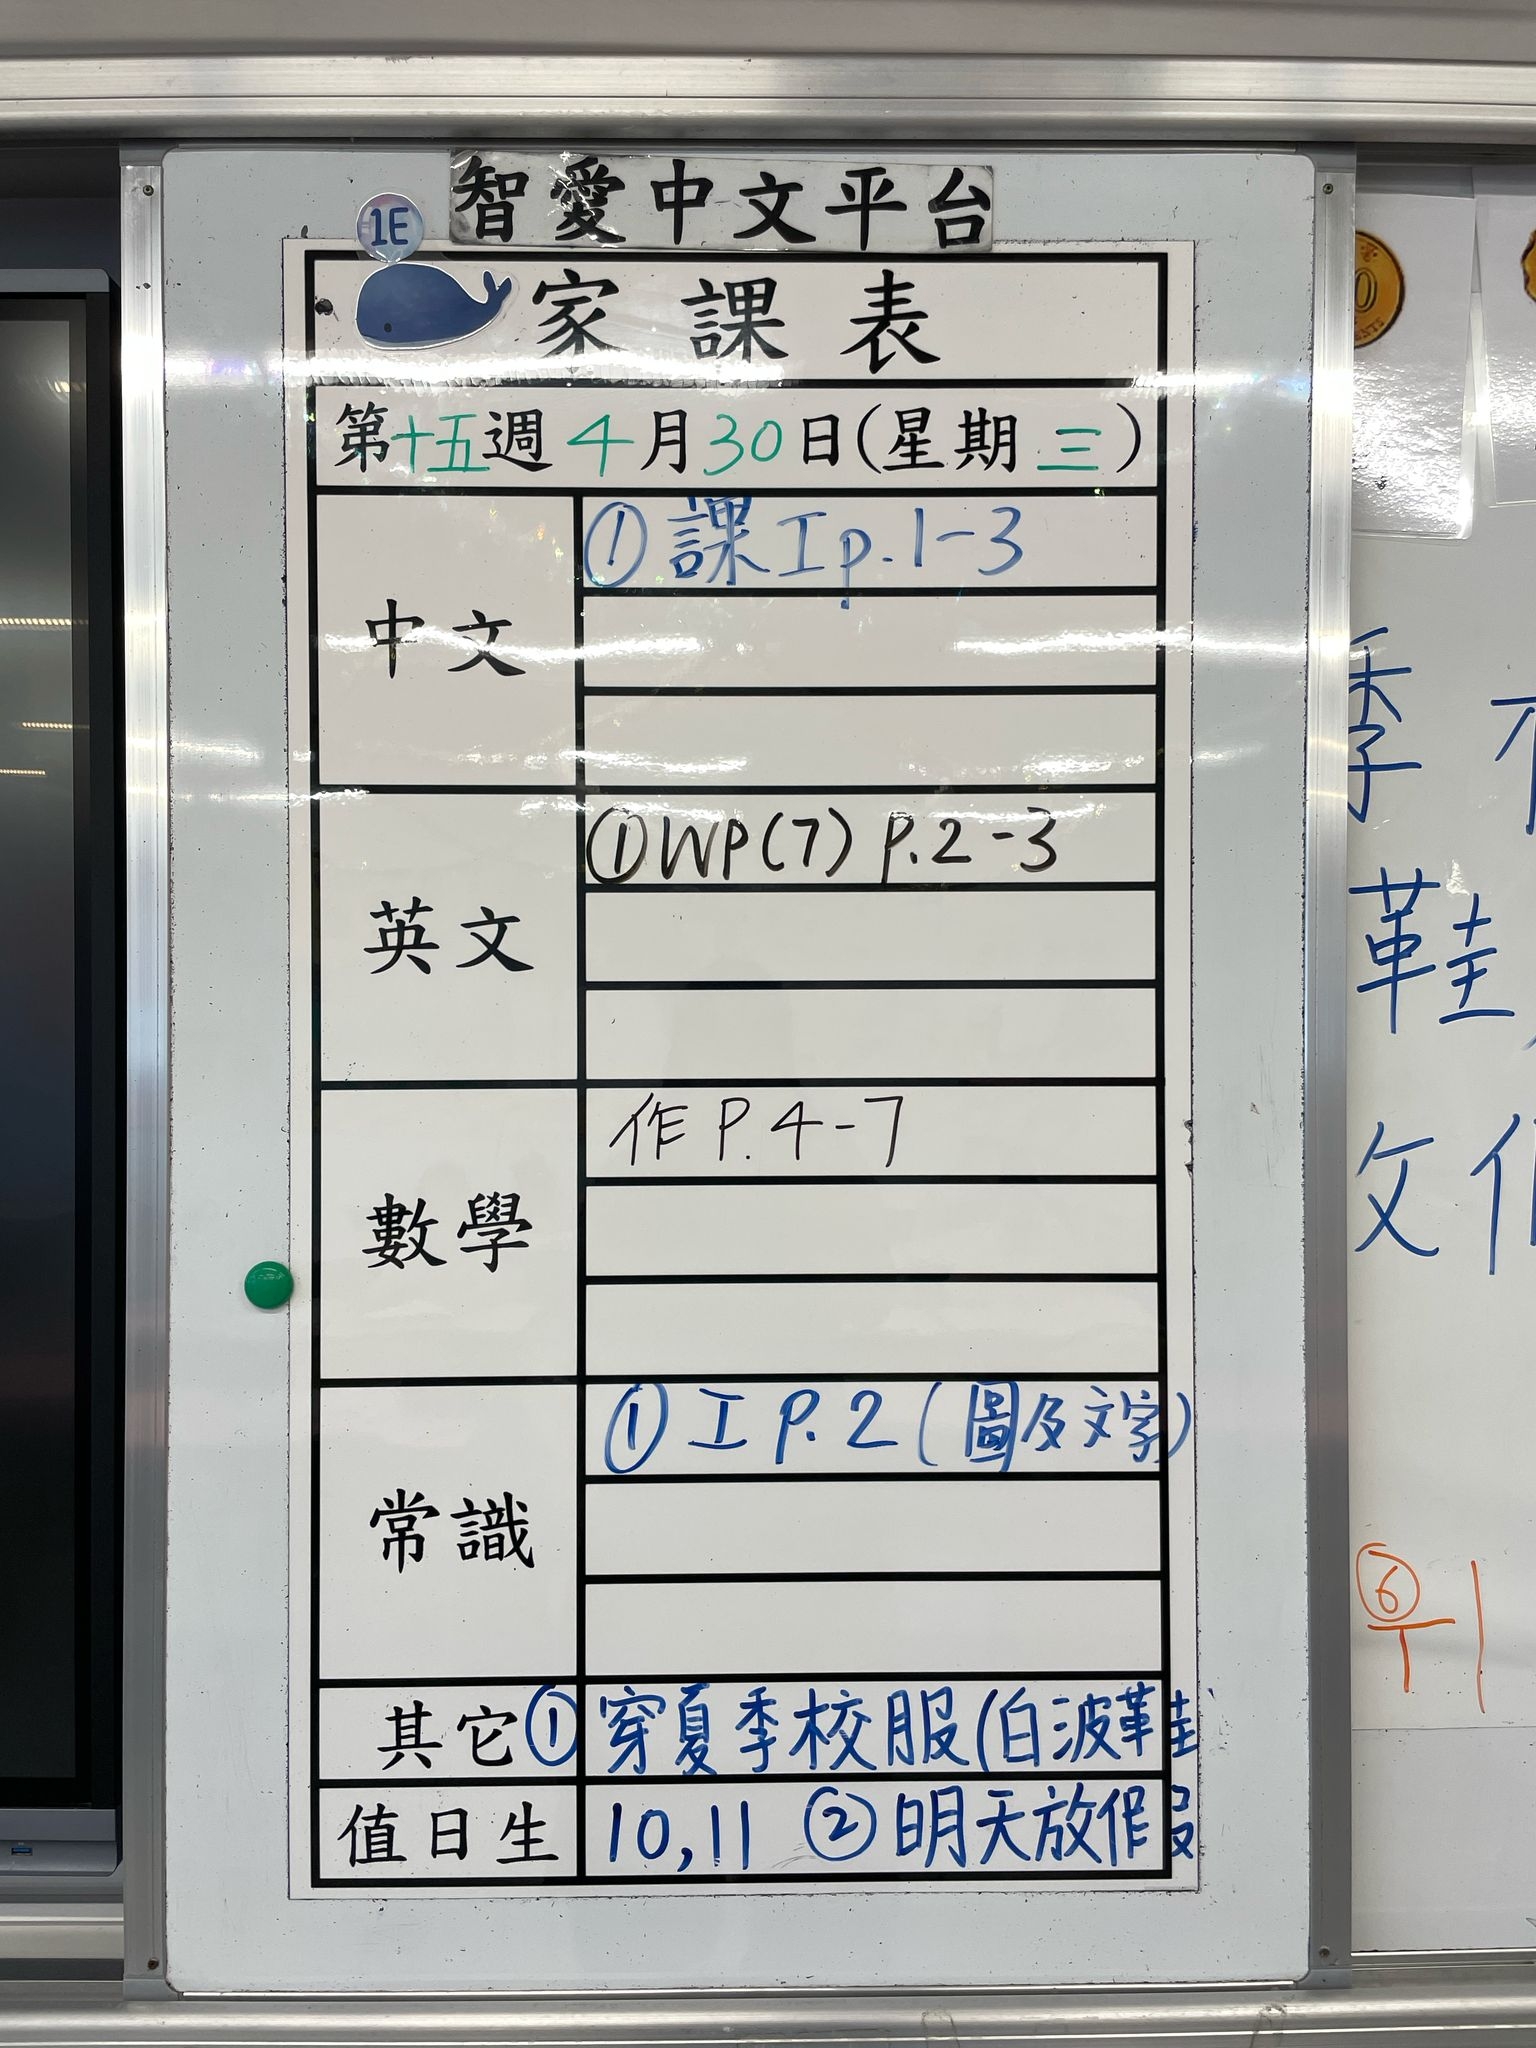 智愛中文平台
1E
家課表
第十五週 4月30日(星期三)
中文
①課工p.1-3
英文
①WP(7) P.2-3
數學
作 P.4-7
常識
①工 P.2(圖及文字)
其它
①穿夏季校服(白波鞋
值日生
10,11 ②明天放假
季
鞋
⑥